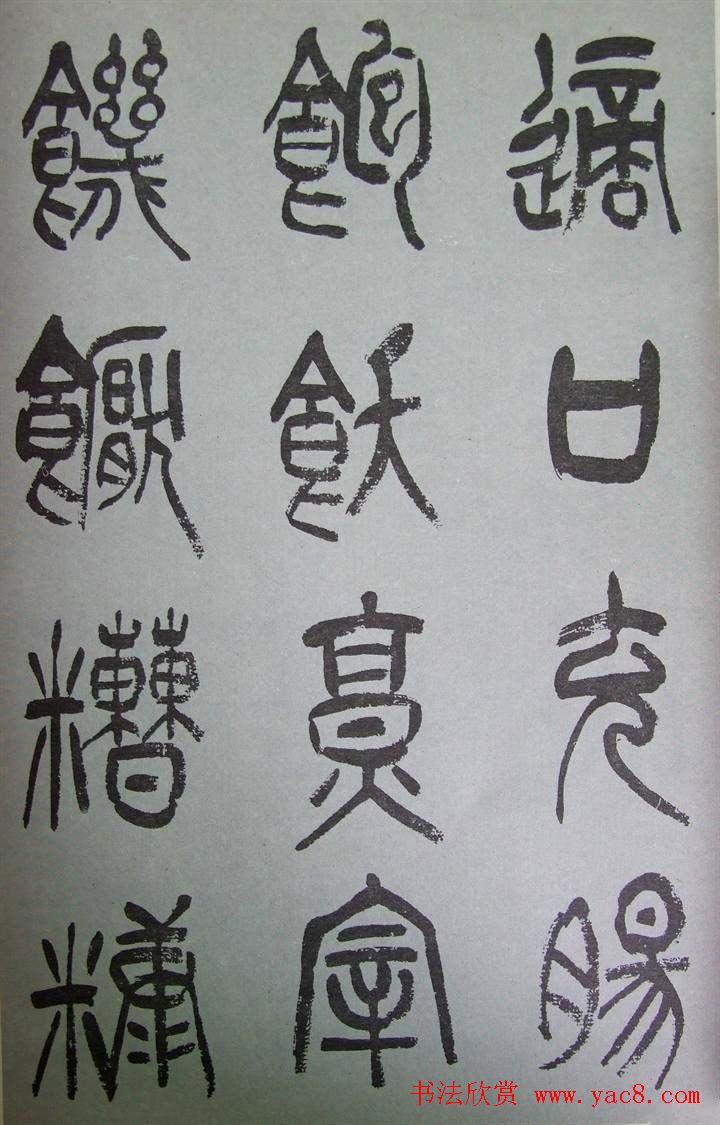 適口充腸
飽飫烹宰
饑厭糟糠
书法欣赏 www.yac8.com